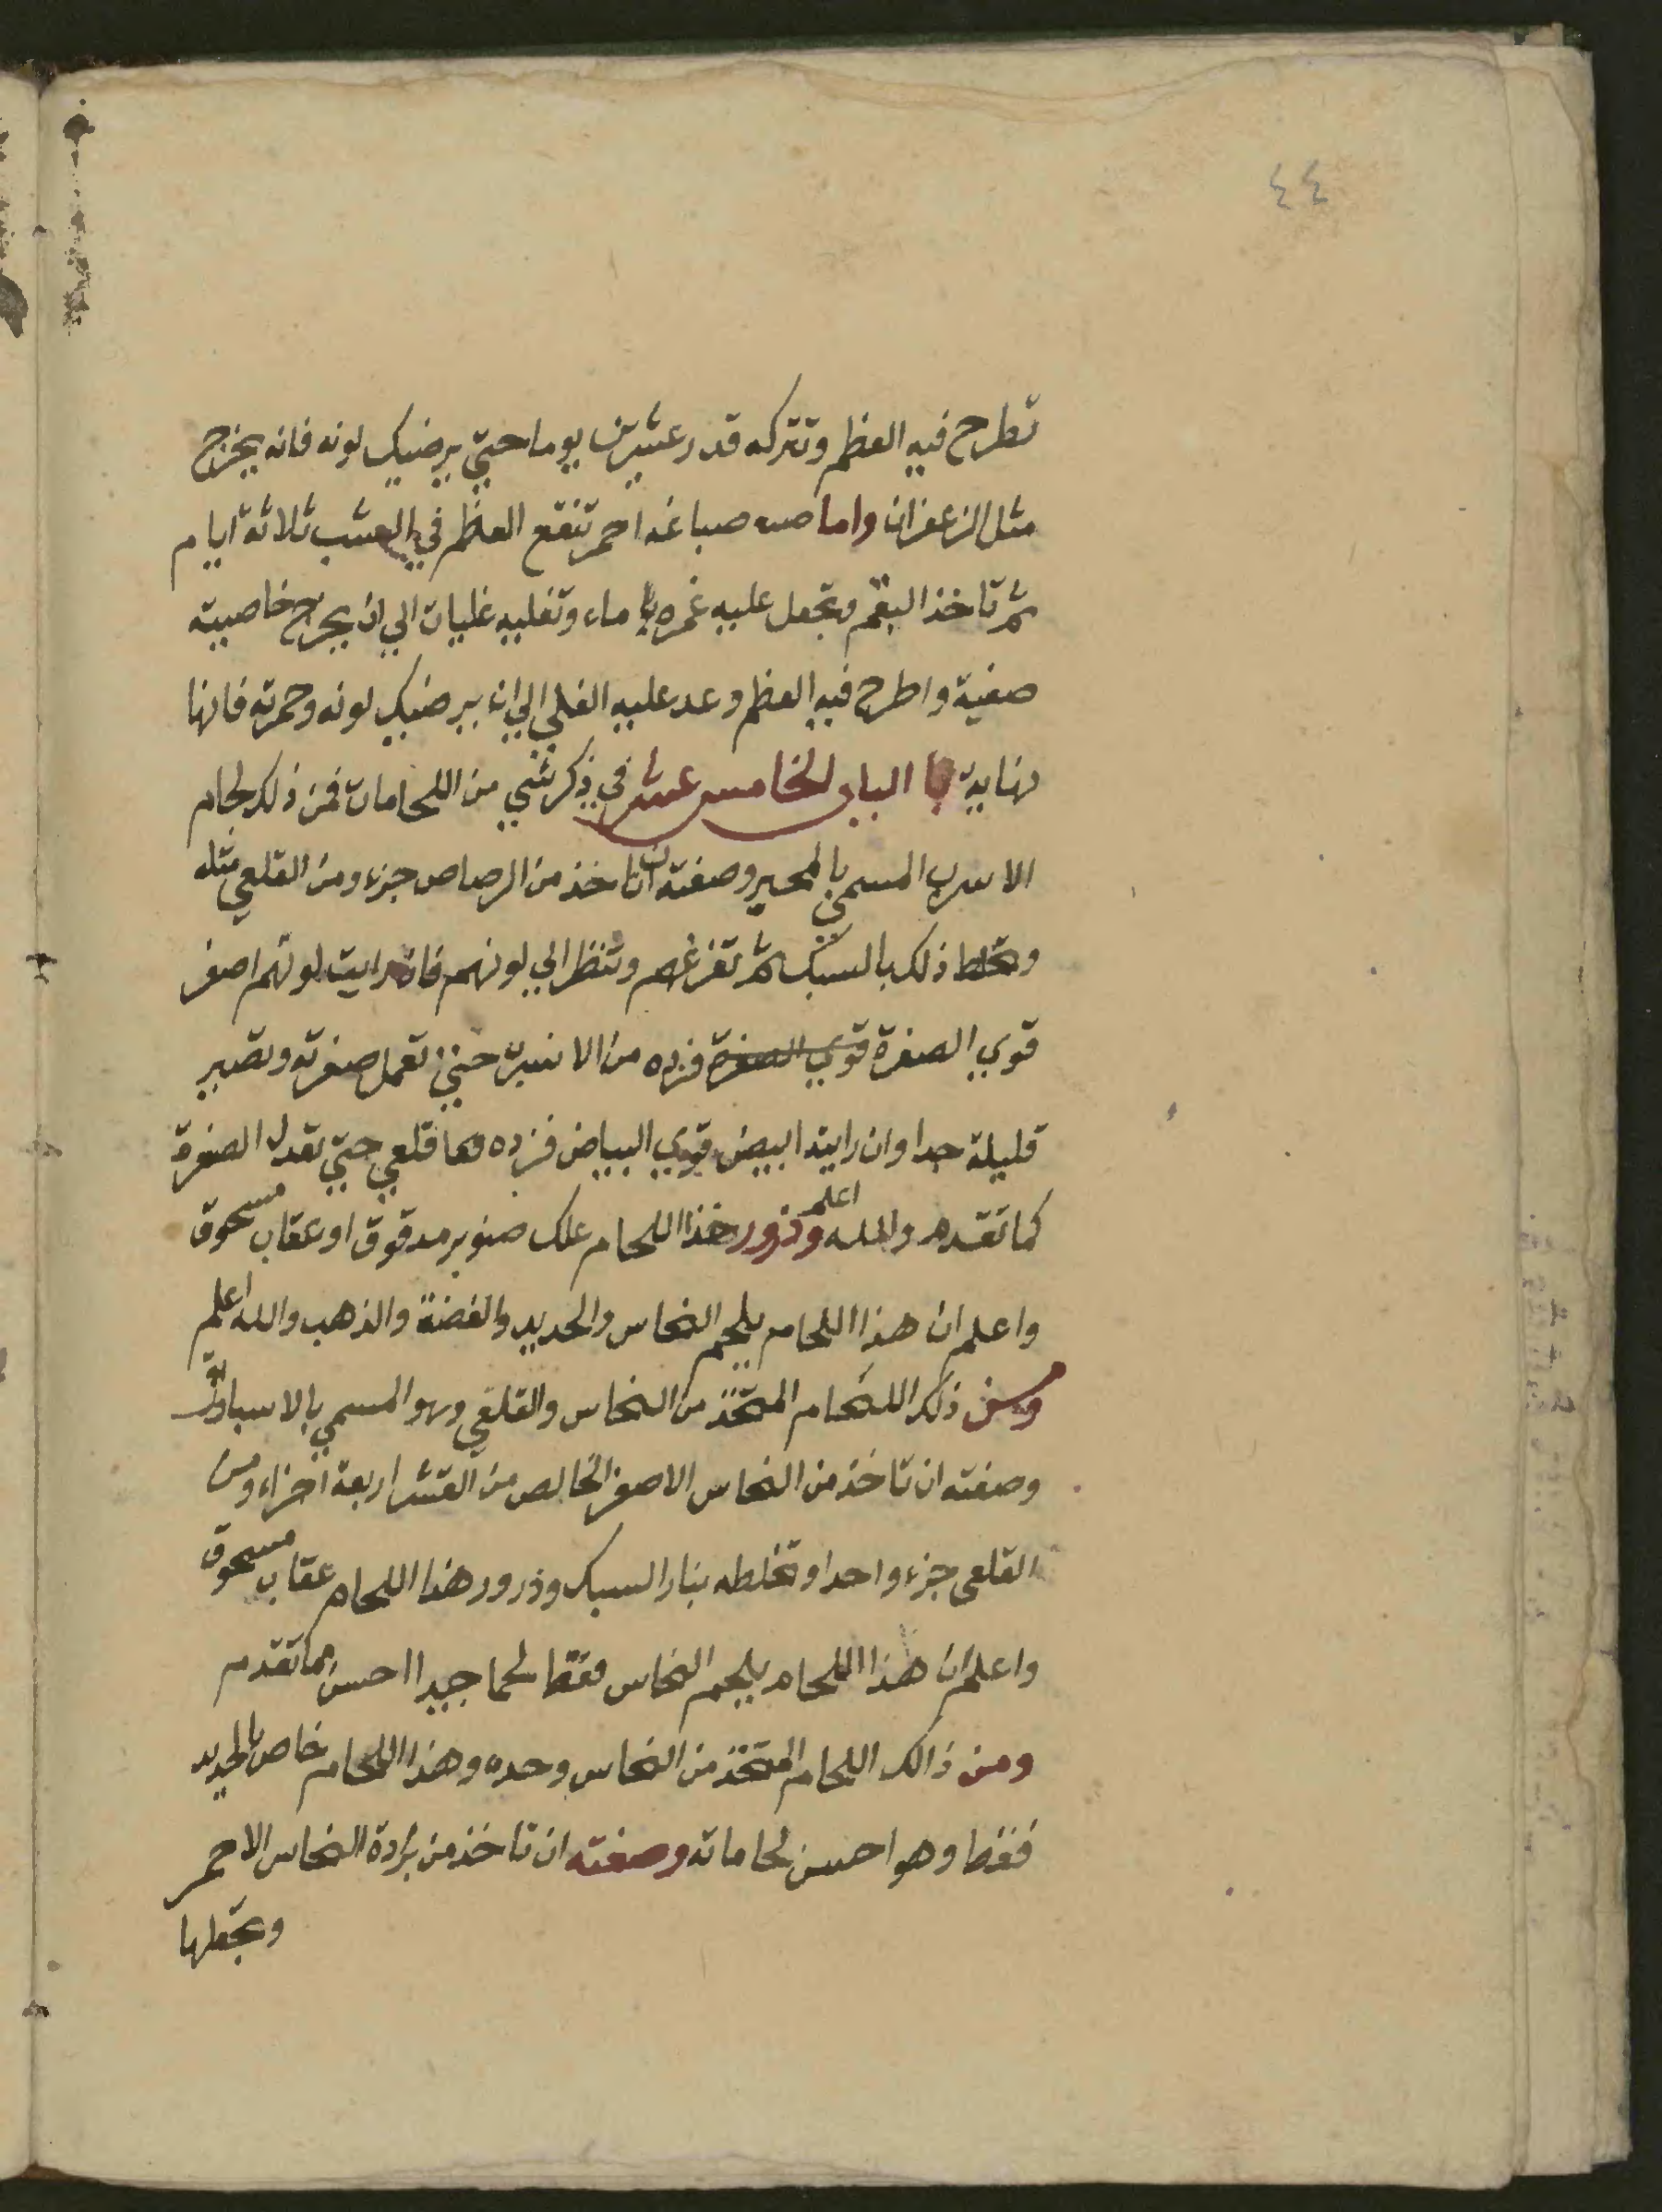 ٤٤
تطرح فيه العظم وتتركه قدر عشرين يوما حتي يرضيك لونه فانه يخرج
مثل الزعفران واما صباغه احمر تنقع العظم في الشب ثلاثة ايام
ثم تاخذ البقم وتجعل عليه غمره ماء وتغليه غليات الي ان يخرج خاصيته
صفيه واطرح فيه العظم وعد عليه الغلي الي ان يرضيك لونه وحمرته فانها
نهاية الباب الخامس عشر في ذكر شي من اللحامات فمن ذلك لحام
الاسرب المسمي بالمحير وصفته ان تاخذ من الرصاص جزء ومن القلعي مثله
وتخلط ذلك بالسبك ثم تفرغهم وتنظر الي لونهم فان رايت لونهم اصفر
قوي الصفرة قوي الصفرة فزده من حتي تعمل صفرته وتصير
قليلة جدا وان رايته ابيض قوي البياض فزده قلعي حتي تعدل الصفرة
كما تقدم والله اعلم وذرور هذا اللحام علك صنوبر مدقوق او عقاب مسحوق
واعلم ان هذا اللحام يلحم النحاس والحديد والفضة والذهب والله اعلم
ومن ذلك اللحام المتخذ من النحاس والقلعي وهو المسمي
وصفته ان تاخذ من النحاس الاصفر الخالص من القشر اربعة اجزاء ومن
القلعي جزء واحدا وتخلطه بنار السبك وذرور هذا اللحام عقاب مسحوق
واعلم ان هذا اللحام يلحم النحاس فقط لحما جيدا احسن مما تقدم
ومن ذالك اللحام المتخذ من النحاس وحده وهذا اللحام خاص بالحديد
فقط وهو احسن لحاماته وصفته ان تاخذ من برادة النحاس الاحمر
وتجعلها